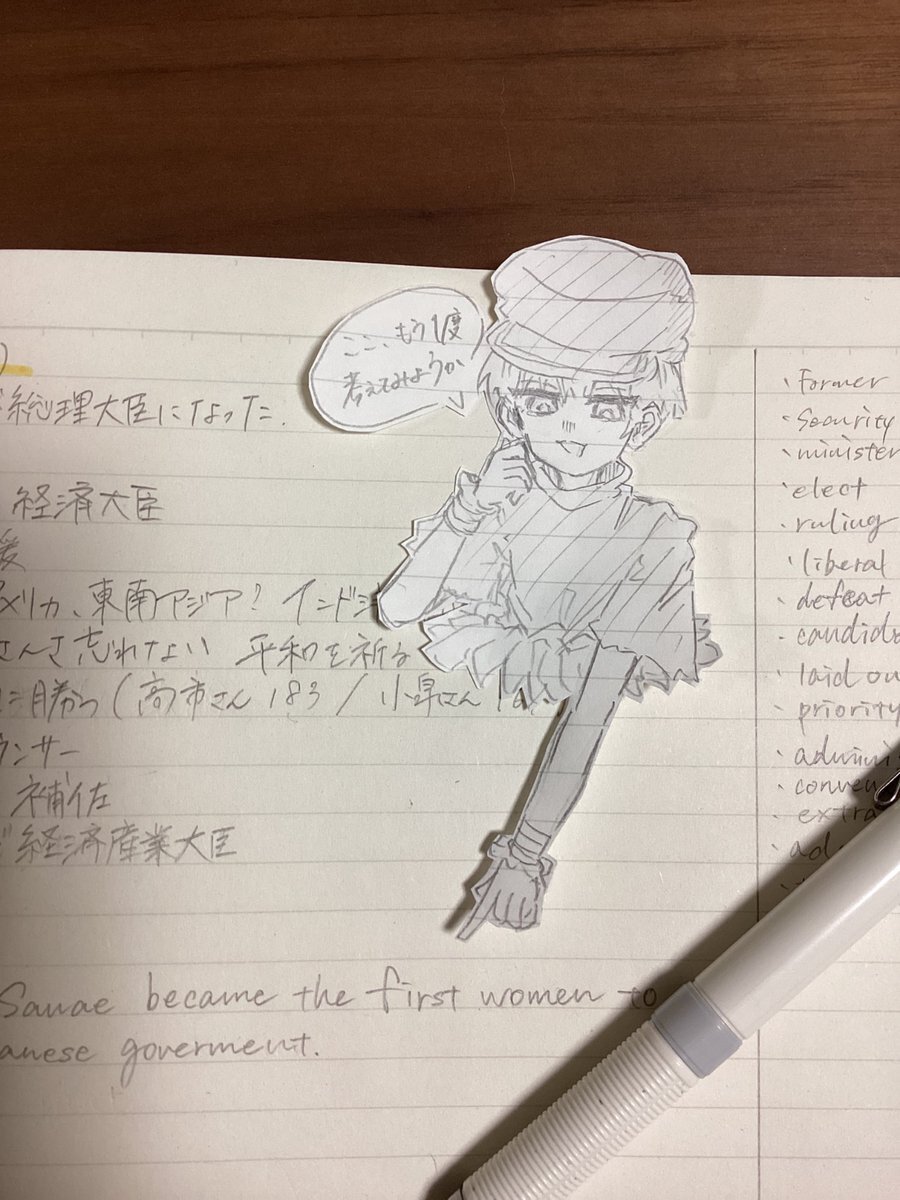 ここ、もう1度
考えてみようか
総理大臣になった.
経済大臣
後
メリカ、東南アジア? インド
さんさ忘れない 平和を祈る
に勝つ(高市さん 183 / 小泉さん
ウンサー
補佐
経済産業大臣
Sanae became the first women to
anese goverment.
・Former
・Security
・minister
・elect
・ruling
・liberal
・defeat
・candida
・laid ou
・priority
・admini
・conven
・extra
・ad